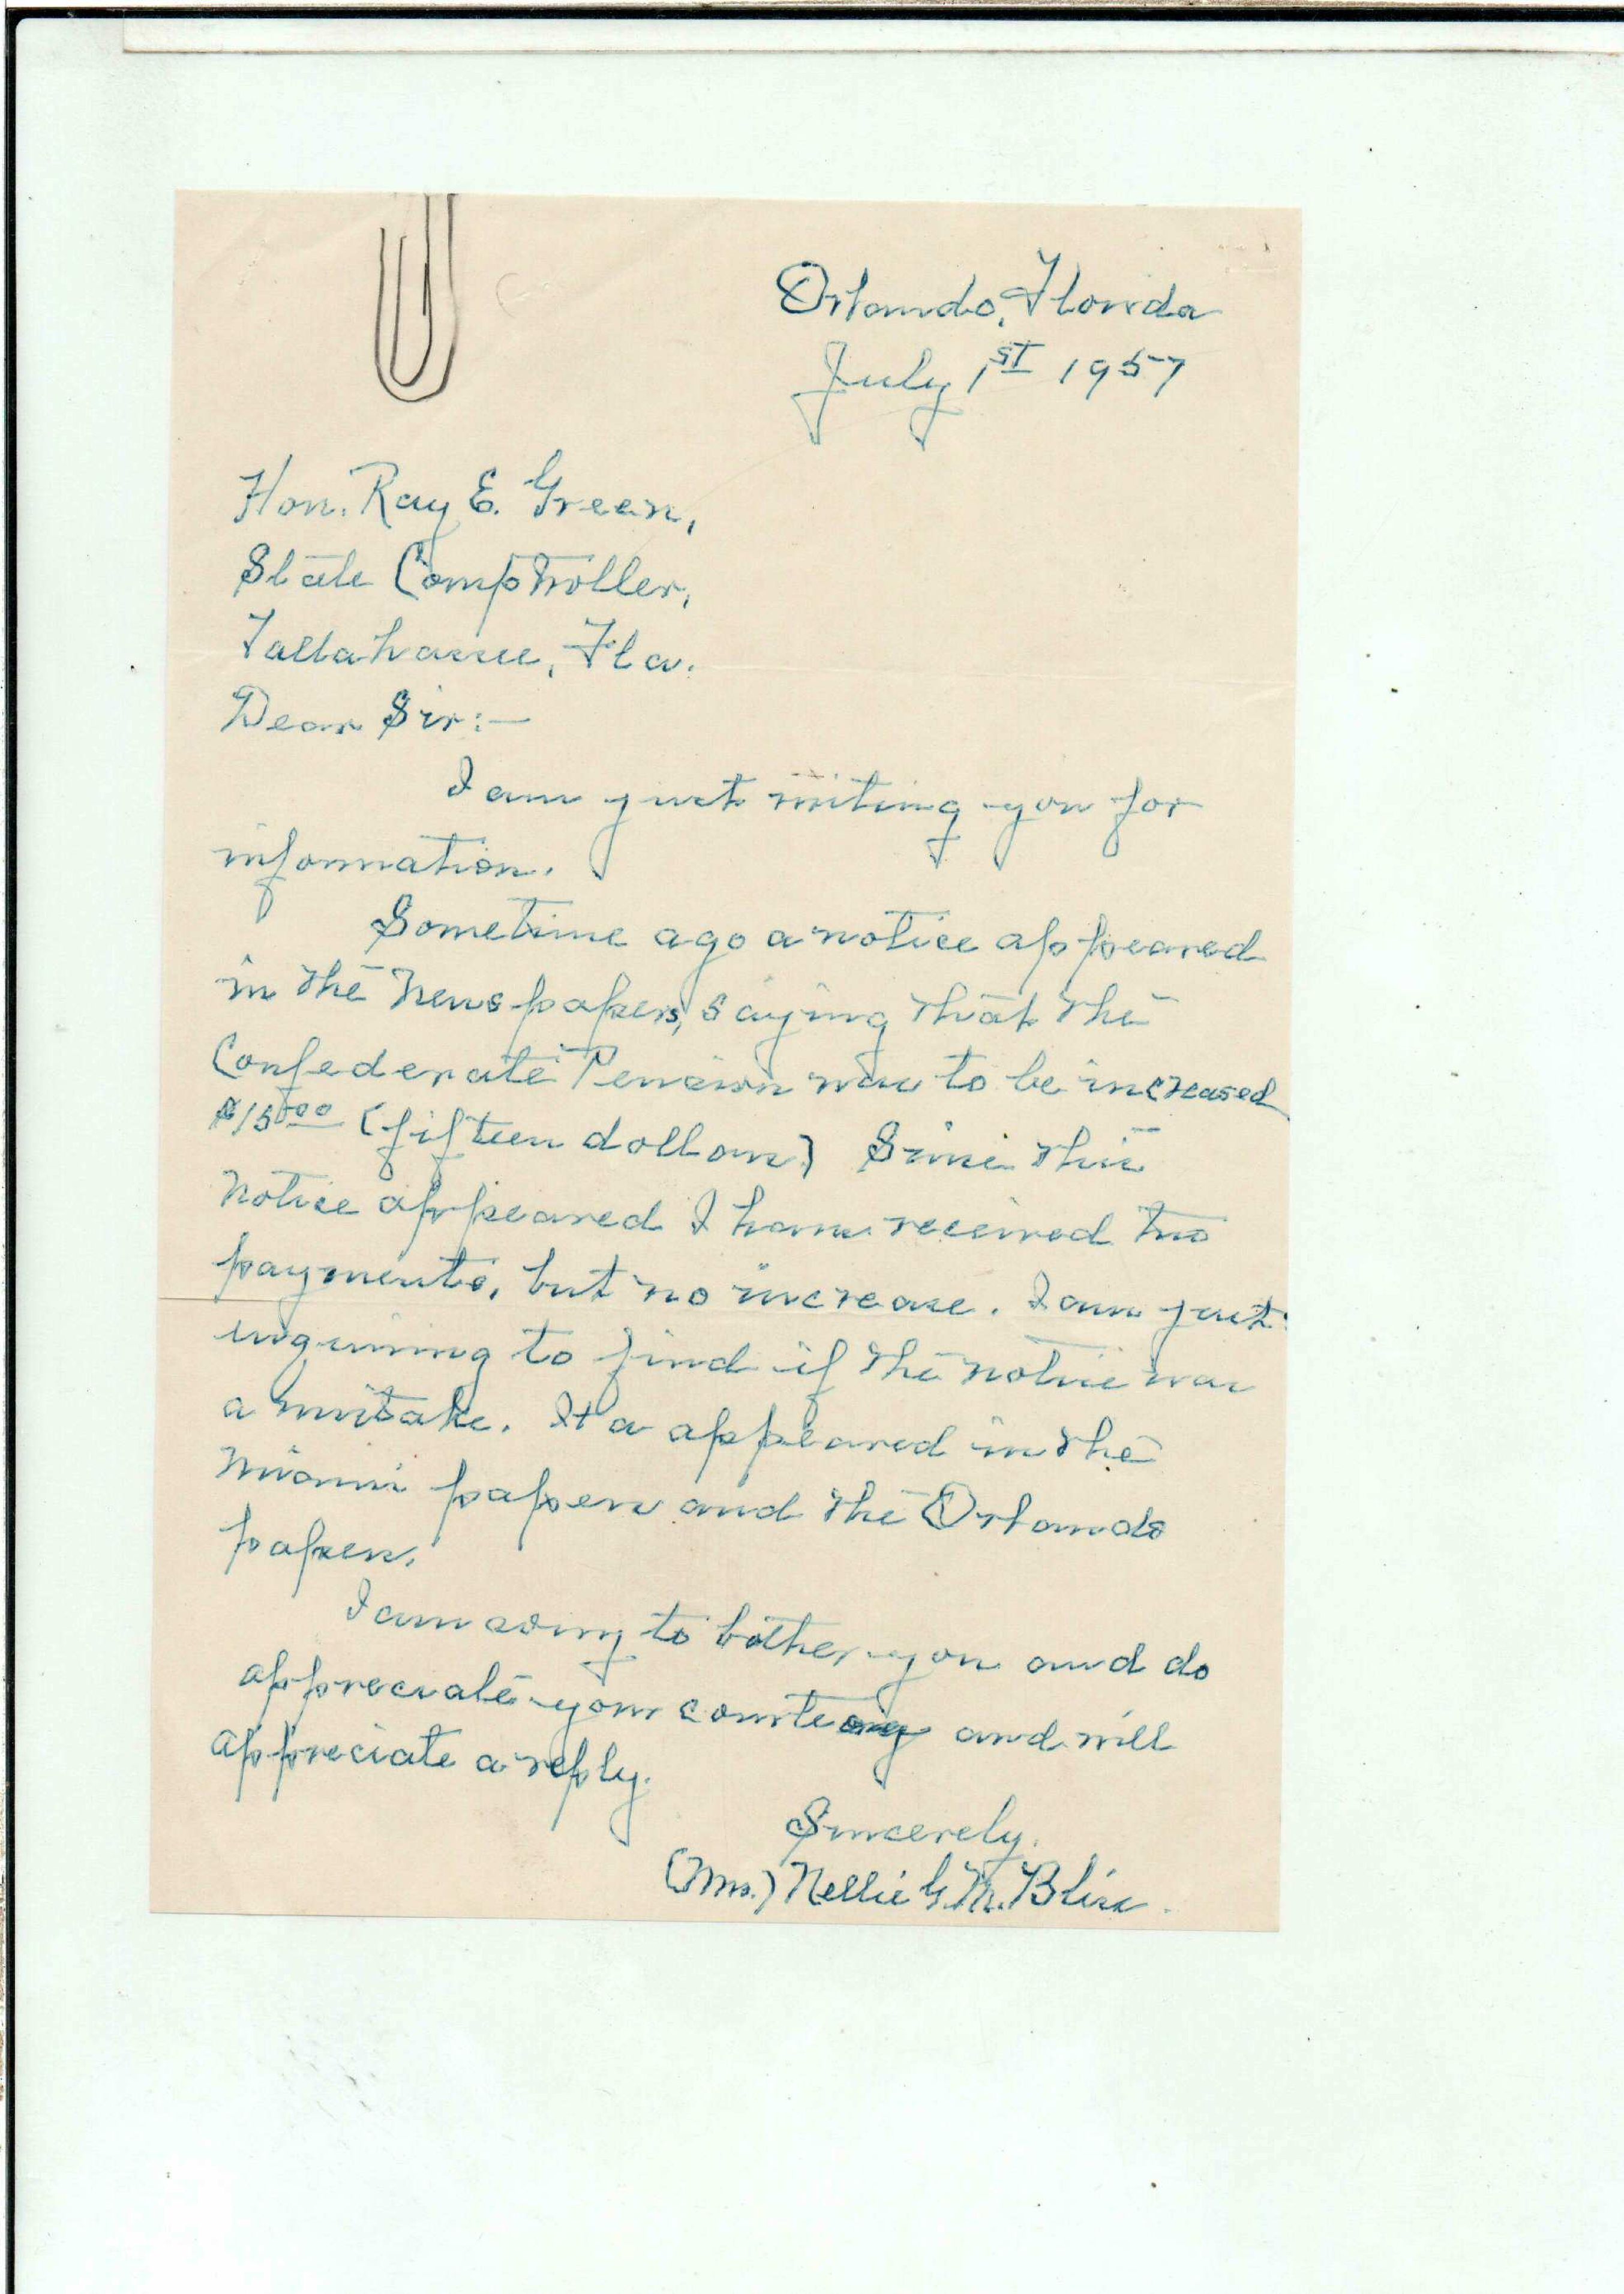 Orlando, Florida
July 1st 1957
Hon. Ray E. Green,
State Comptroller,
Tallahassee, Fla.
Dear Sir:—
I am just writing you for
information.
Sometime ago a notice appeared
in the Newspapers, saying that the
Confederate Pension was to be increased
$15.00 (fifteen dollars) Since this
Notice appeared I have received two
payments, but no increase. I am just
inquiring to find if the notice was
a mistake. It a appeared in the
Miami papers and the Orlando
papers.
I am sorry to bother you and do
appreciate your courtesy and will
appreciate a reply.
Sincerely,
(Mrs.) Nellie G. M. Bliss.